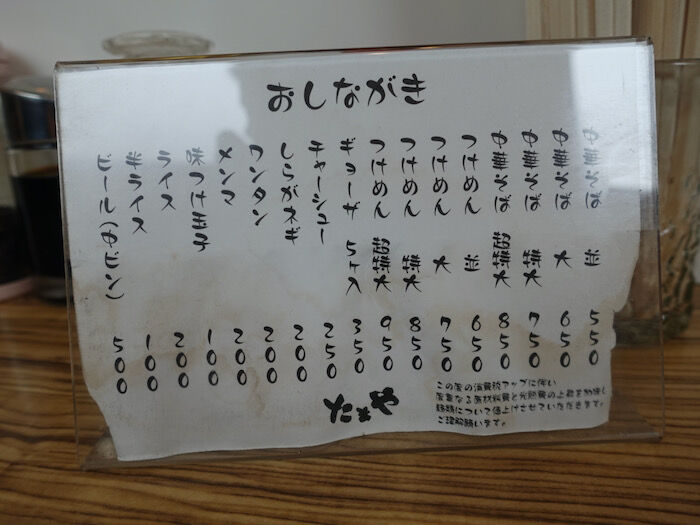 おしながき
中華そば 並 550
中華そば 大 650
中華そば 特大 750
中華そば 超特大 850
つけめん 並 650
つけめん 大 750
つけめん 特大 850
つけめん 超特大 950
ギョーザ 5ヶ入 350
チャーシュー 250
しらがネギ 200
ワンタン 200
メンマ 200
味つけ玉子 100
ライス 200
半ライス 100
ビール(中ビン) 500
この度の消費税アップに伴い
度重なる原材料費と光熱費の上昇を加味し
諸税について値上げさせていただきます。
ご理解願います。